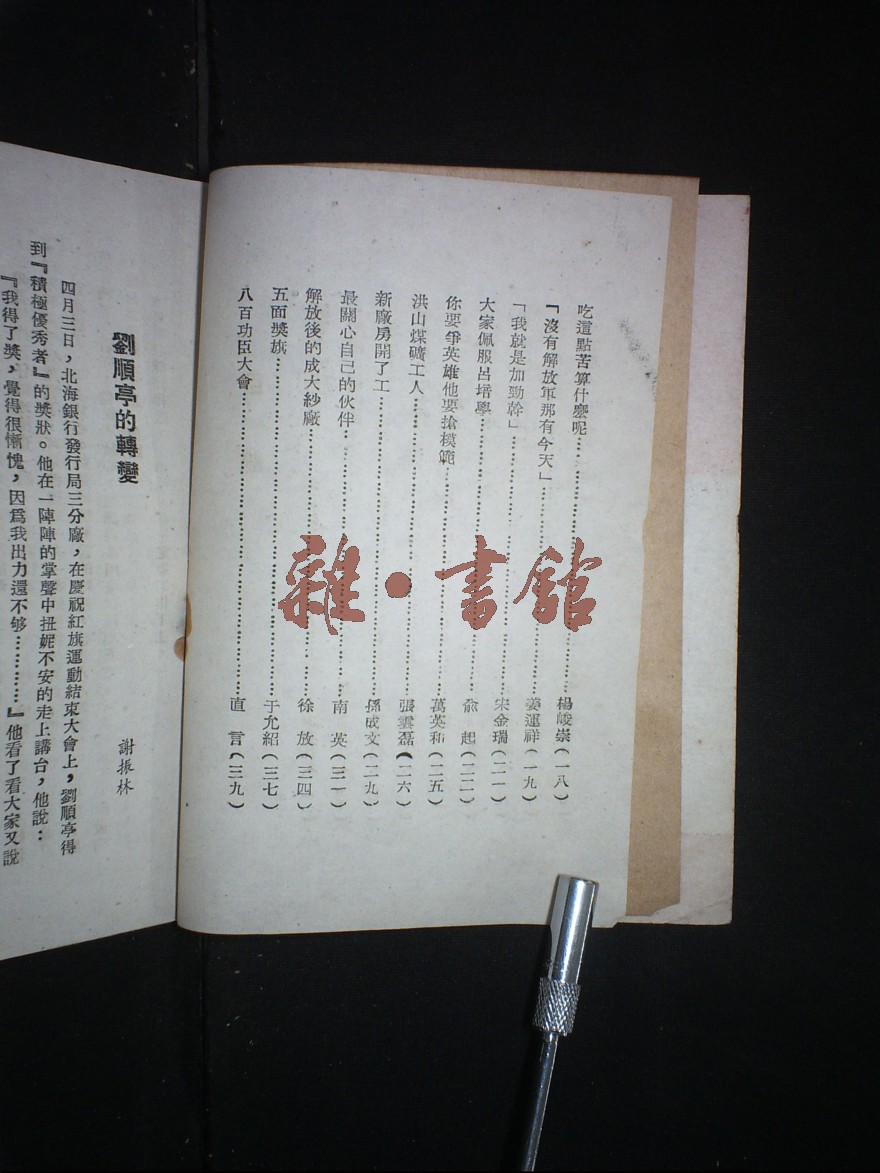 吃這點苦算什麼呢……楊峻崇(一八)
「沒有解放軍那有今天」……姜運祥(一九)
「我就是加勁幹」……宋金瑞(二一)
大家佩服呂培學……俞　起(二二)
你要爭英雄他要搶模範……萬英和(二五)
洪山煤礦工人……張雲磊(二六)
新廠房開了工……孫成文(二九)
最關心自己的伙伴……南　英(三一)
解放後的成大紗廠……徐　放(三四)
五面獎旗……于允紹(三七)
八百功臣大會……直　言(三九)
劉順亭的轉變
謝振林
四月三日，北海銀行發行局三分廠，在慶祝紅旗運動結束大會上，劉順亭得
到『積極優秀者』的獎狀。他在一陣陣的掌聲中扭妮不安的走上講台，他說：
『我得了獎，覺得很慚愧，因爲我出力還不够…………』他看了看大家又說
雜·書館